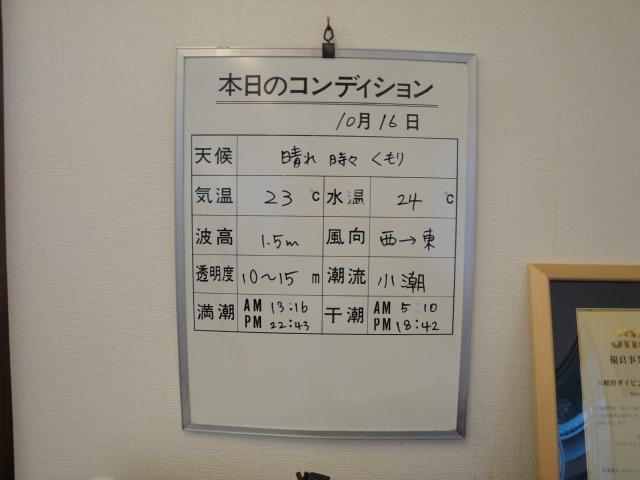 本日のコンディション
10月16日
天候 晴れ 時々 くもり
気温 23 ℃ 水温 24 ℃
波高 1.5m 風向 西→東
透明度 10〜15 m 潮流 小潮
満潮 AM 13:16 干潮 AM 5:10
PM 22:43 PM 18:42
優良事業
八幡野ダイビン